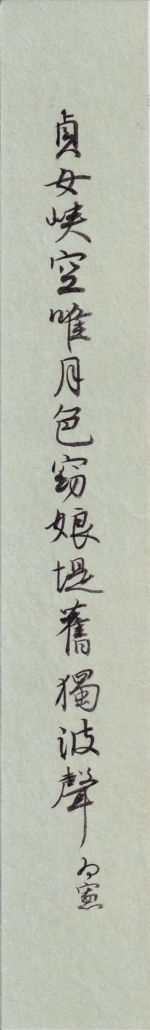 貞女峽空唯月色窈娘堤舊獨波聲
为憲